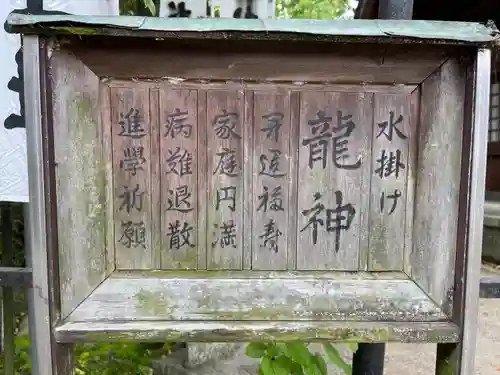 水掛け
龍神
福壽
家庭円満
病難退散
進學祈願